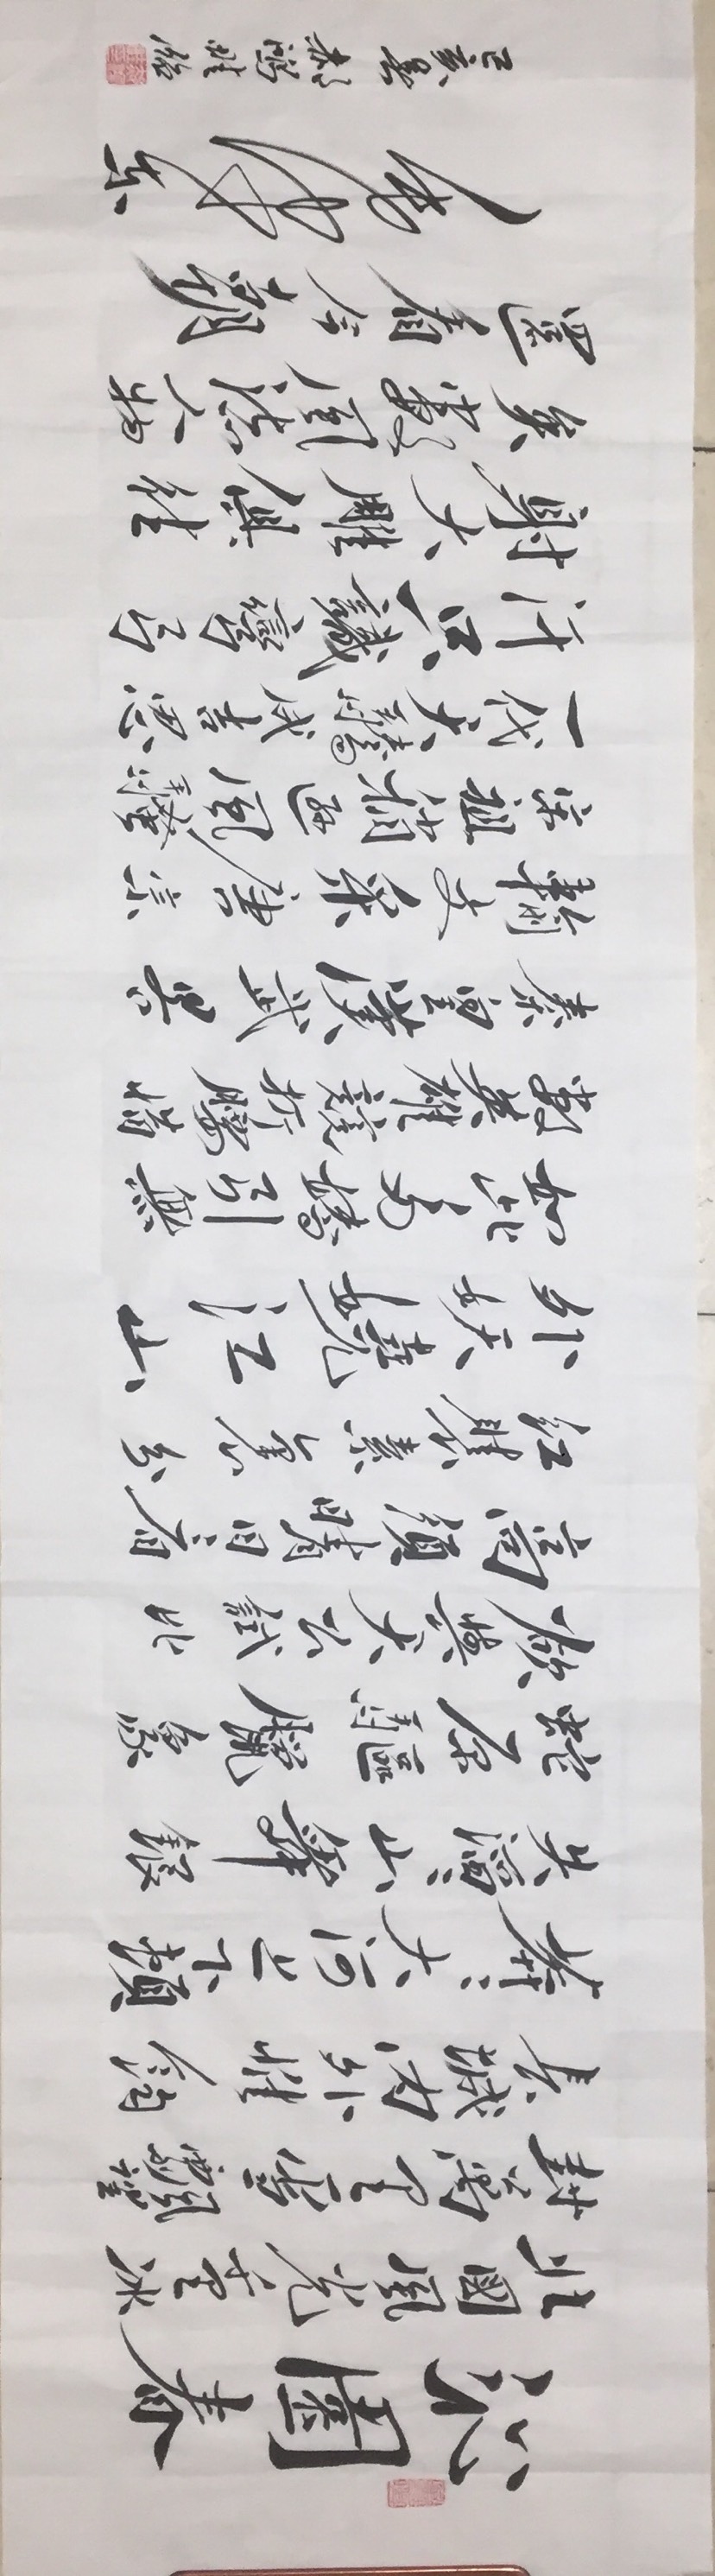 沁園春
北國風光千里冰
封萬里雪飄望
長城內外惟餘
莽々大河上下頓
失滔々山舞銀
蛇原驅臘象
欲與天公試比
高須晴日看
紅裝素裹分
外妖嬈江山
如此多嬌引無
數英雄競折腰惜
秦皇漢武畧
輸文采唐宗
宋祖稍遜風騷
一代天驕成吉思
汗只識彎弓
射大雕俱往
矣數風流人物
還看今朝
毛澤东
己亥夏